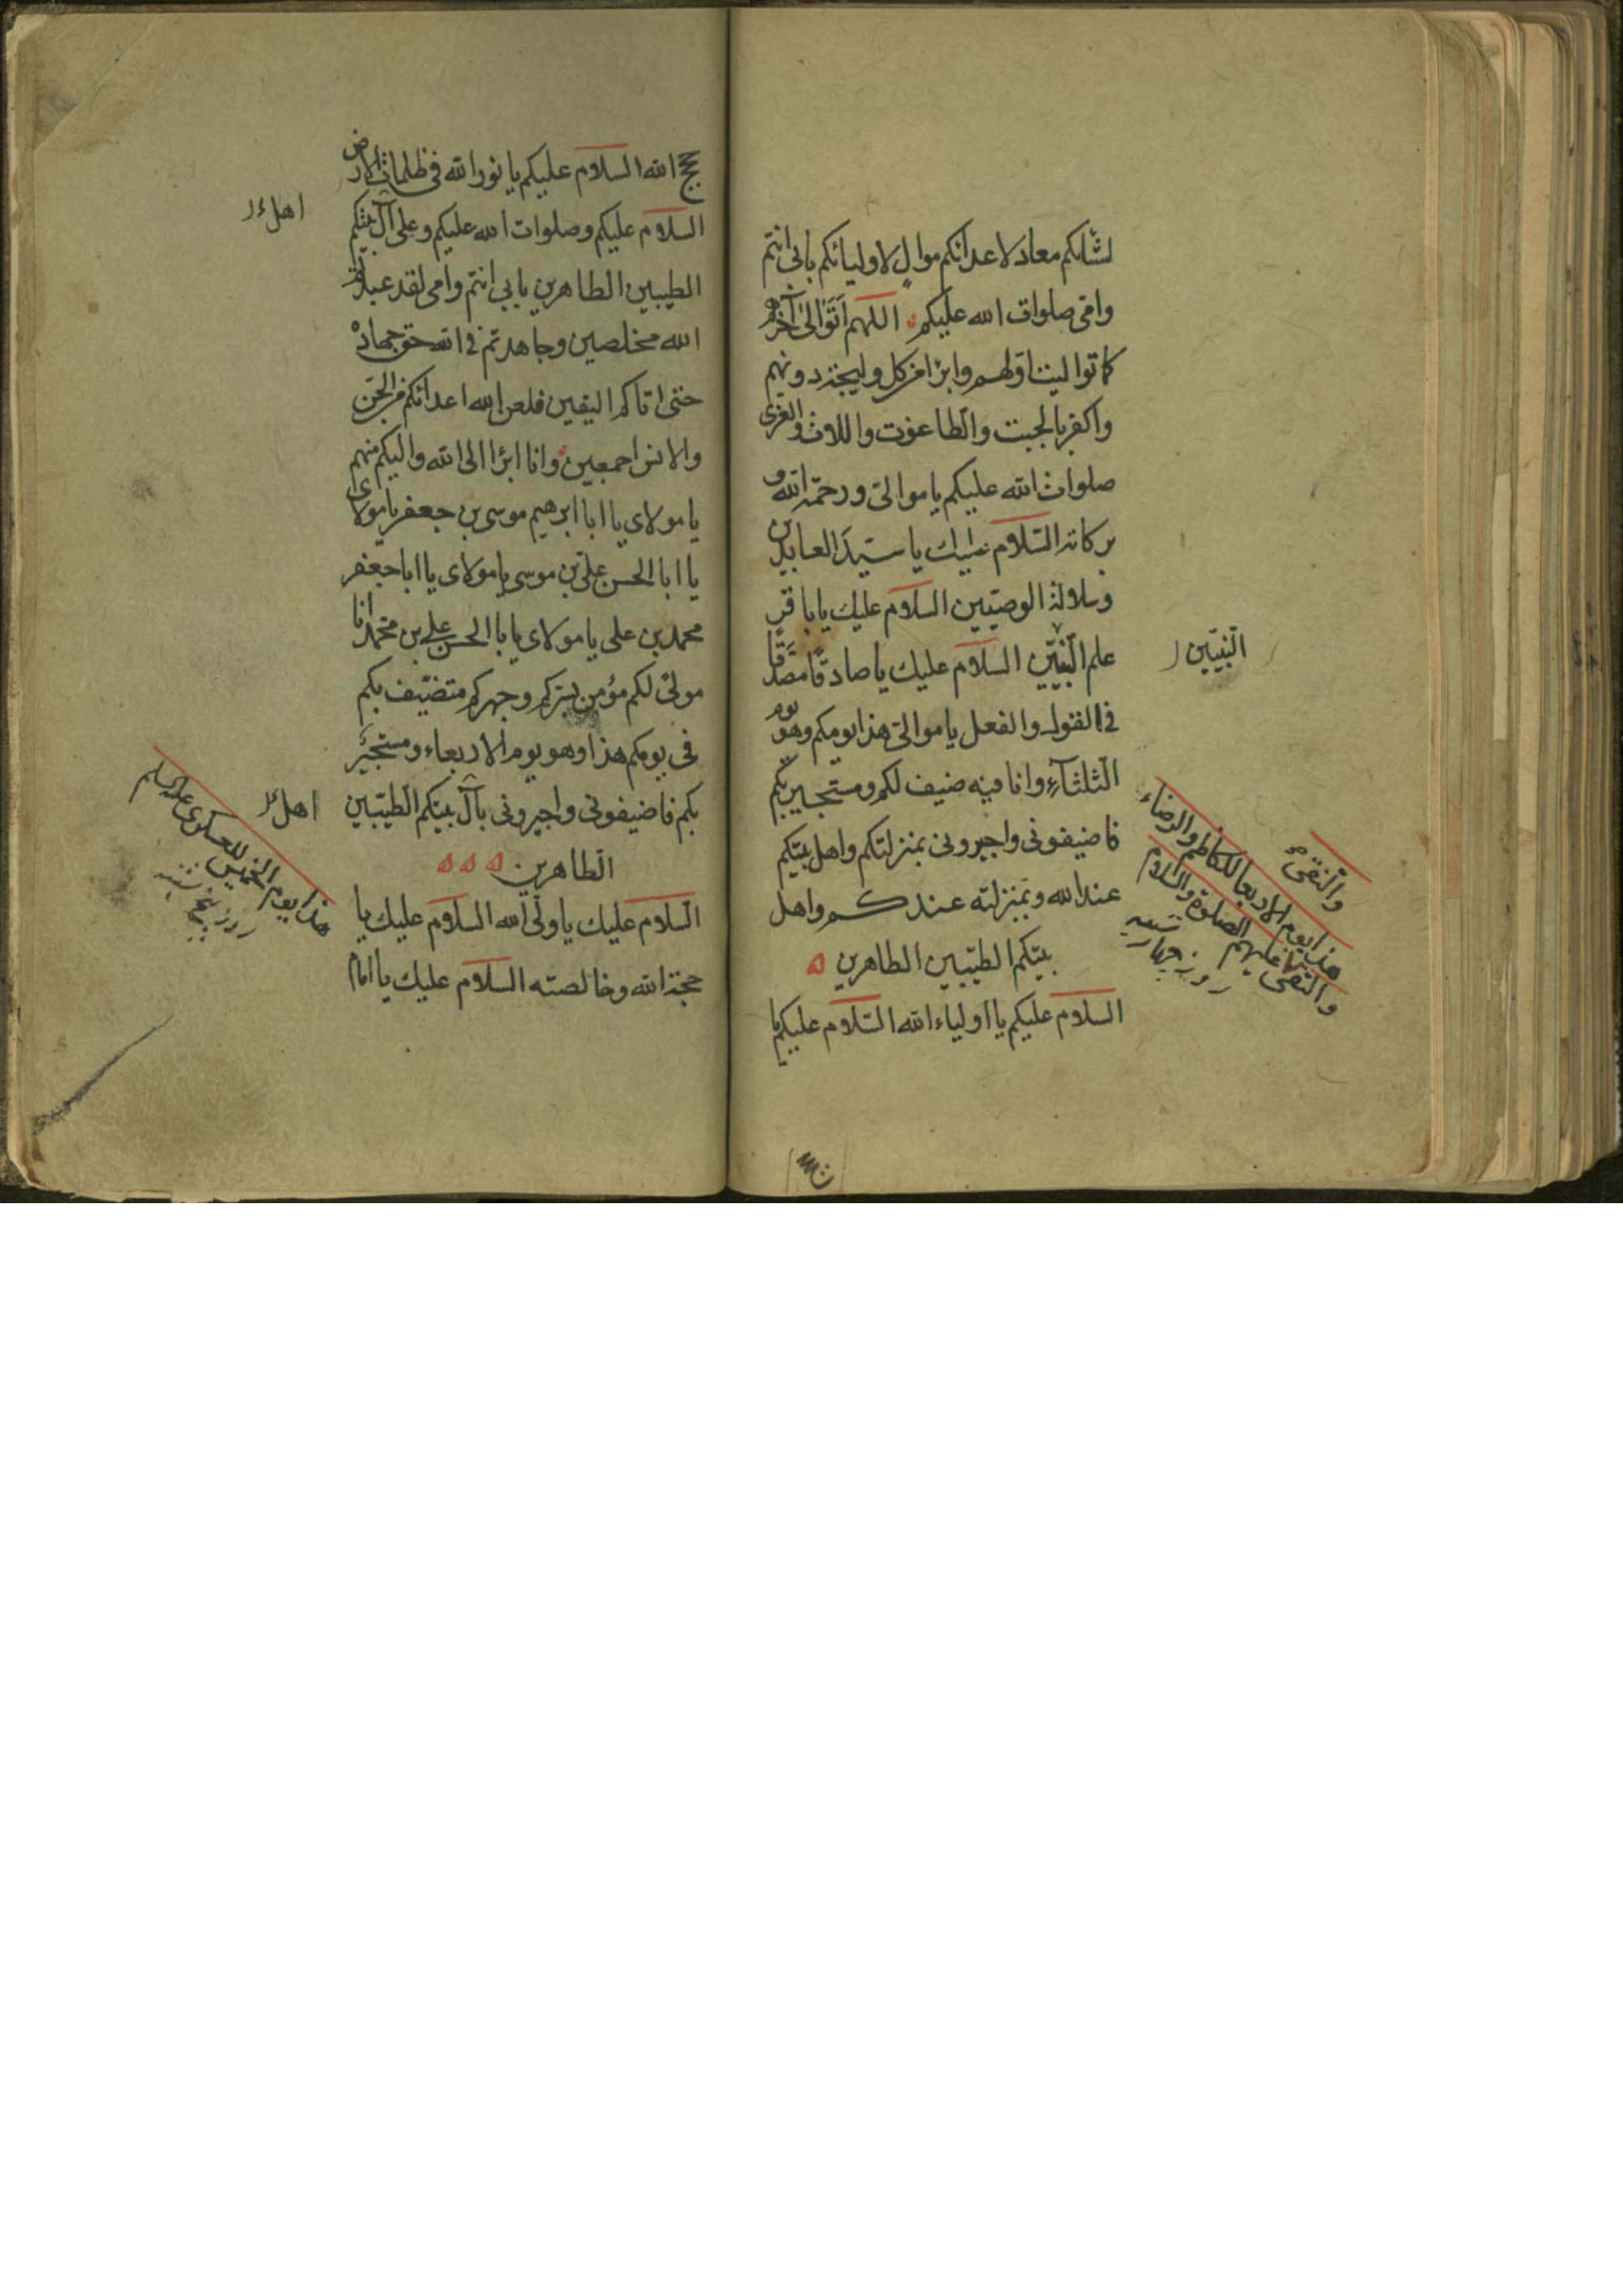 لشأنكم معاد لاعدائكم موالٍ لاوليائكم بابى انتم
وامى صلوات الله عليكم اللهم اتوالى آخرهم
كما توالیت اولهم وابرأ من كل وليجة دونهم
واكفر بالجبت والطاغوت واللات والعزى
صلوات الله عليكم ياموالى ورحمة الله و
بركاته السلام عليك يا سيد العابدين
وسلالة الوصيين السلام عليك يا باقر
علم النبيين السلام عليك يا صادقا مصدقا
فى القول والفعل ياموالى هذا يومكم وهو يوم
الثلثآء وانا فيه ضيف لكم ومستجير بكم
فاضيفونى واجيرونى بمنزلتكم واهل بيتكم
عند الله وبمنزلته عندكم واهل
بيتكم الطيبين الطاهرين
السلام عليكم يا اولياء الله السلام عليكم يا
النبيين
والنقى
هذا يوم الاربعا للكاظم والرضاء
والتقى عليهم الصلوة والسلام
روز چهار شنبه
حجج الله السلام عليكم يا نور الله فى ظلمات الارض
السلام عليكم وصلوات الله عليكم وعلى آل بيتكم
الطيبين الطاهرين بابى انتم وامى لقد عبدتم
الله مخلصين وجاهدتم فى الله حق جهاده
حتى اتاكم اليقين فلعن الله اعدائكم من الجن
والانس اجمعين وانا ابرا الى الله واليكم منهم
يا مولاى يا ابا ابرهيم موسى بن جعفر يا مولاى
يا ابا الحسن على بن موسى يا مولاى يا ابا جعفر
محمد بن على يا مولاى يا با الحسن على بن محمد انا
مولى لكم مؤمن بسركم وجهركم متضيف بكم
فى يومكم هذا وهو يوم الاربعاء ومستجير
بكم فاضيفونى واجيرونى بآل بيتكم الطيبين
الطاهرين
السلام عليك يا ولى الله السلام عليك يا
حجة الله وخالصته السلام عليك يا امام
اهل
اهل
هذا يوم الخميس للعسكرى عليه السلم
روز پنج شنبه